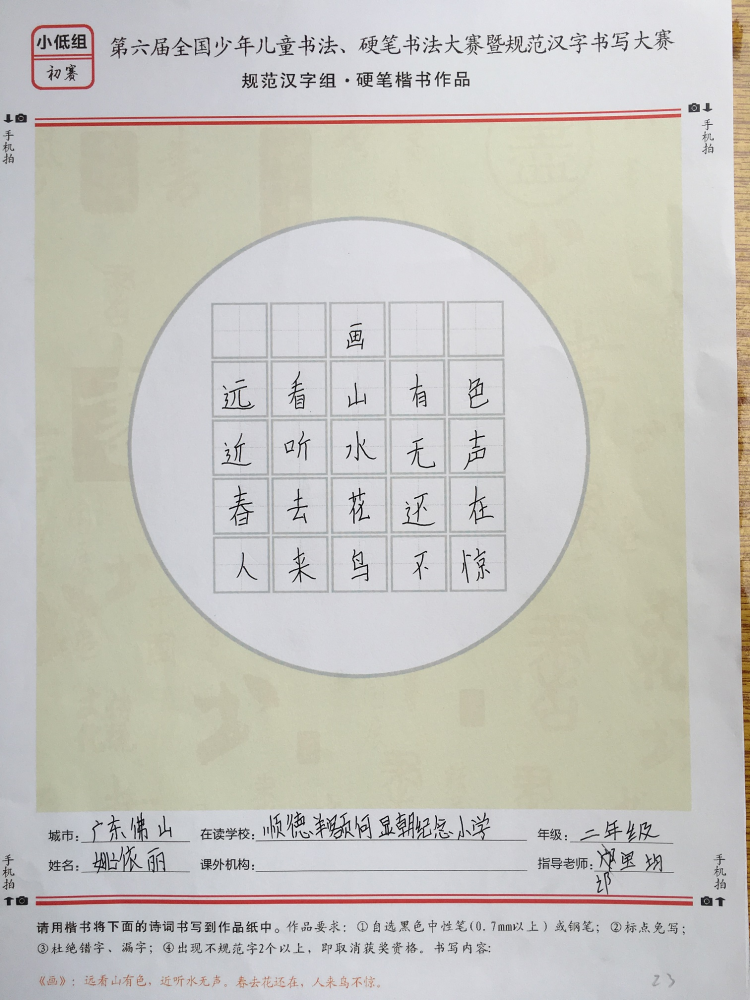 小低组
初赛
第六届全国少年儿童书法、硬笔书法大赛暨规范汉字书写大赛
规范汉字组·硬笔楷书作品
手机拍
手机拍
画
远看山有色
近听水无声
春去花还在
人来鸟不惊
城市：广东佛山 在读学校：顺德何显朝纪念小学 年级：二年级
姓名：依丽 课外机构： 指导老师：
手机拍
手机拍
请用楷书将下面的诗词书写到作品纸中。作品要求：①自选黑色中性笔(0.7mm以上)或钢笔；②标点免写；
③杜绝错字、漏字；④出现不规范字2个以上，即取消获奖资格。书写内容：
《画》：远看山有色，近听水无声。春去花还在，人来鸟不惊。
23